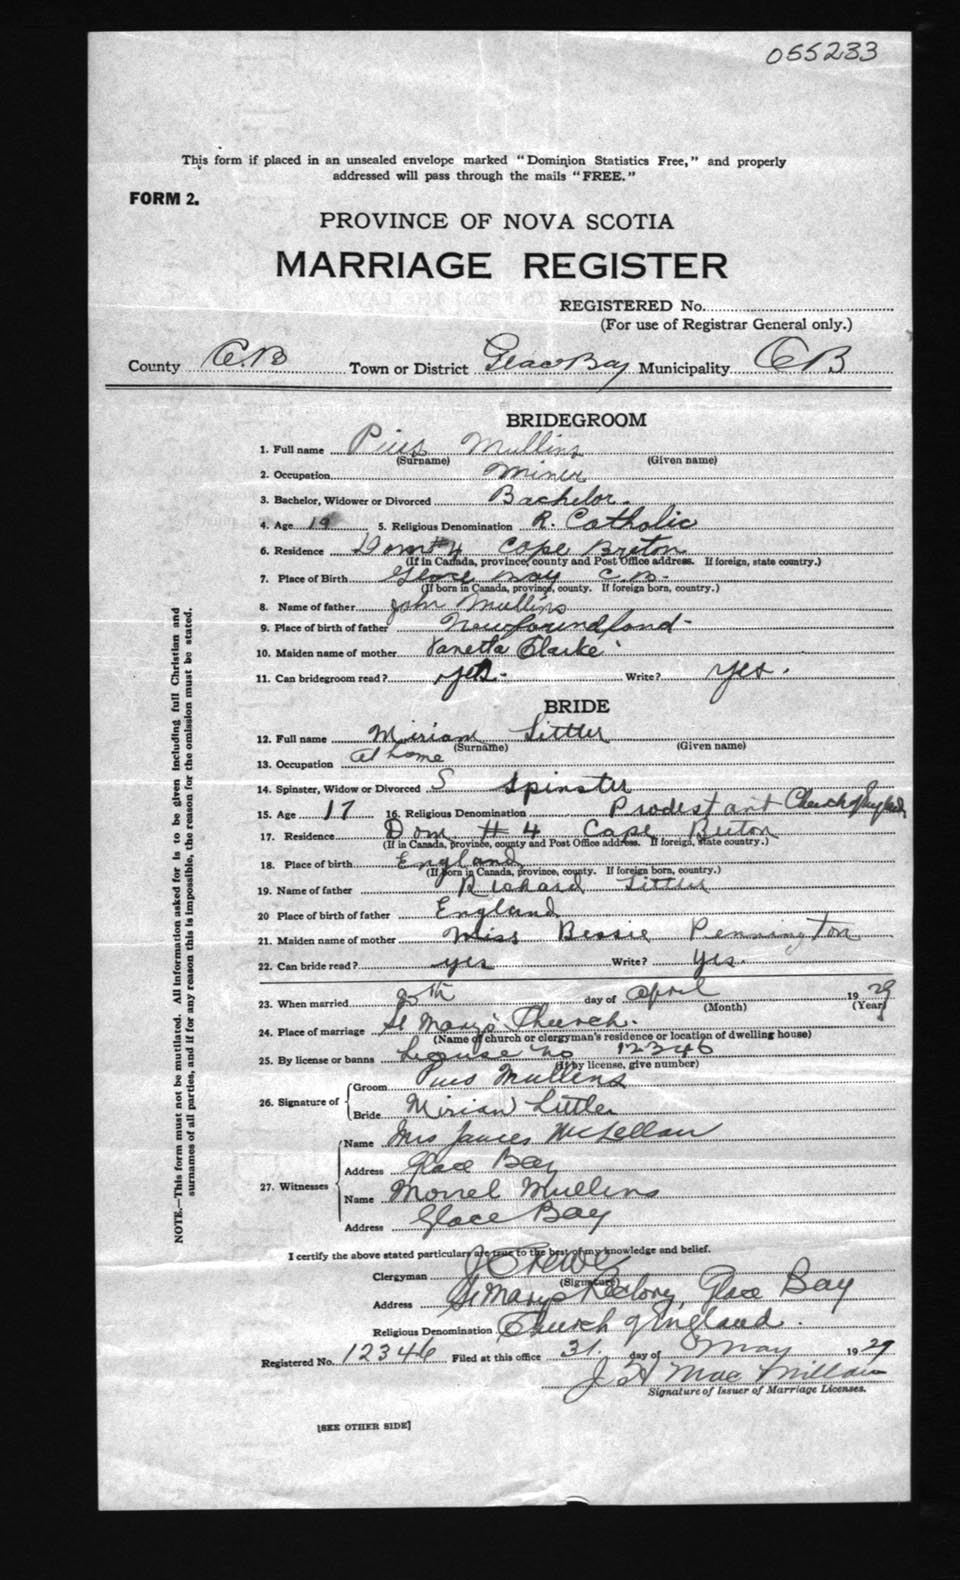 055233
This form if placed in an unsealed envelope marked "Dominion Statistics Free," and properly
addressed will pass through the mails "FREE."
FORM 2.
PROVINCE OF NOVA SCOTIA
MARRIAGE REGISTER
REGISTERED No.
(For use of Registrar General only.)
County C.B Town or District Glace Bay Municipality CB
BRIDEGROOM
1. Full name Pius Mullins
(Surname) (Given name)
2. Occupation Miner
3. Bachelor, Widower or Divorced Bachelor.
4. Age 19 5. Religious Denomination R. Catholic
6. Residence Dom #4 Cape Breton
(If in Canada, province, county and Post Office address. If foreign, state country.)
7. Place of Birth Glace Bay C.B.
(If born in Canada, province, county. If foreign born, country.)
8. Name of father John Mullins
9. Place of birth of father Newfoundland -
10. Maiden name of mother Clarke
11. Can bridegroom read? yes. Write? yes.
BRIDE
12. Full name Miriam Littler
(Surname) (Given name)
13. Occupation at home
14. Spinster, Widow or Divorced S Spinster
15. Age 17 16. Religious Denomination Prodestant Church of England
17. Residence Dom #4 Cape Breton
(If in Canada, province, county and Post Office address. If foreign, state country.)
18. Place of birth England
(If born in Canada, province, county. If foreign born, country.)
19. Name of father Richard Littler
20 Place of birth of father England
21. Maiden name of mother Miss Bessie Pennington
22. Can bride read? yes Write? yes.
23. When married day of April 1929
(Month) (Year)
24. Place of marriage St Mary's Church.
(Name of church or clergyman's residence or location of dwelling house)
25. By license or banns License no 12346
(If by license, give number)
26. Signature of Groom Pius Mullins
Bride Miriam Littler
27. Witnesses Name Mrs James McLellan
Address Glace Bay
Name Morrel Mullins
Address Glace Bay
I certify the above stated particulars are true to the best of my knowledge and belief.
Clergyman J Crewe
(Signature)
Address St Marys Rectory, Glace Bay
Religious Denomination Church of England.
Registered No. 12346 Filed at this office 31. day of May 1929
J H MacMillan
Signature of Issuer of Marriage Licenses.
[SEE OTHER SIDE]
NOTE.—This form must not be mutilated. All information asked for is to be given including full Christian and
surnames of all parties, and if for any reason this is impossible, the reason for the omission must be stated.